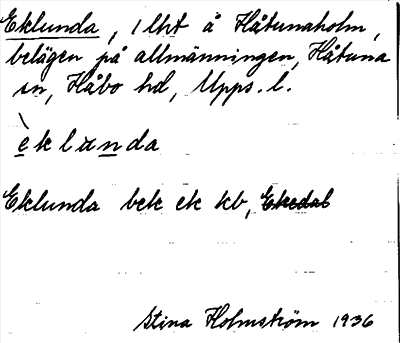 Eklunda, 1 lht å Håtunaholm,
belägen på allmänningen, Håtuna
sn, Håbo hd, Upps. l.
èklunda
Eklunda bek ek kb, Ekedal
Stina Holmström 1936